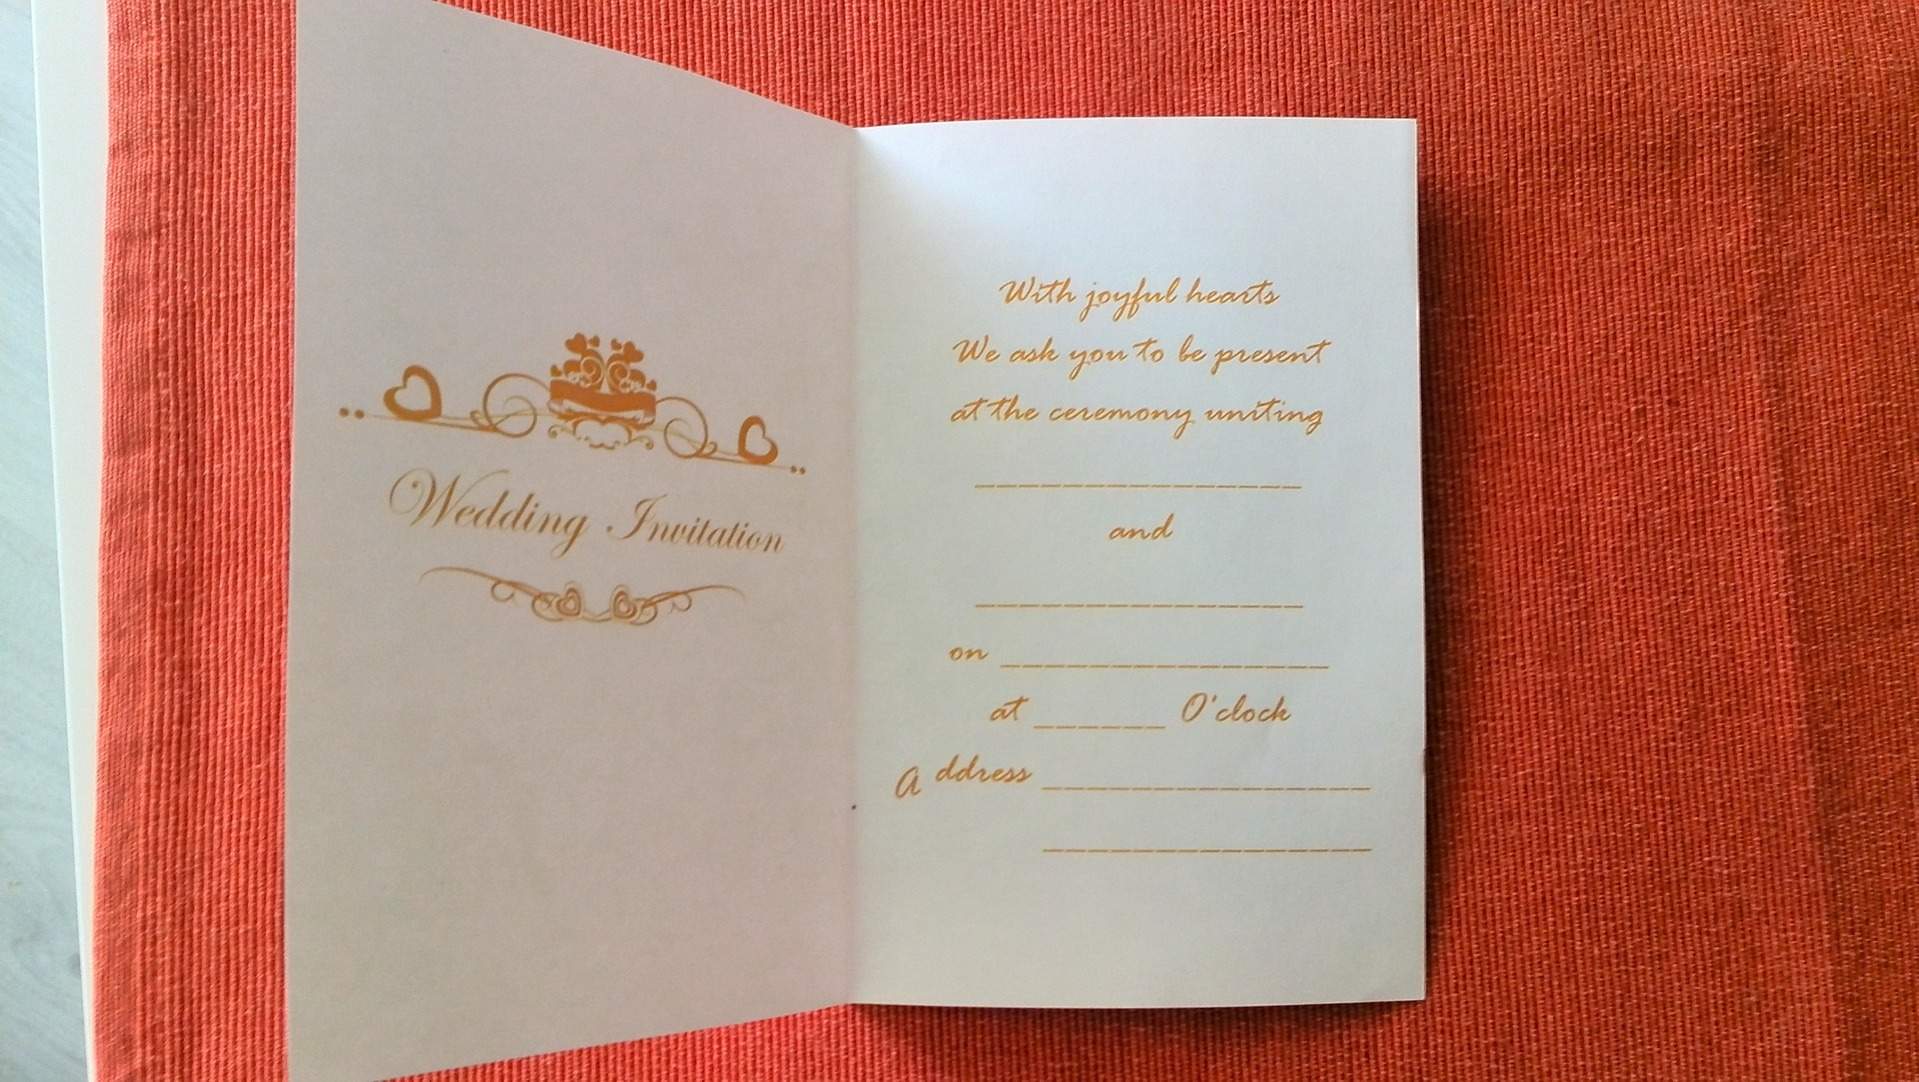 Wedding Invitation
With joyful hearts
We ask you to be present
at the ceremony uniting
_______________
and
_______________
on _______________
at ______ O'clock
Address _______________
_______________